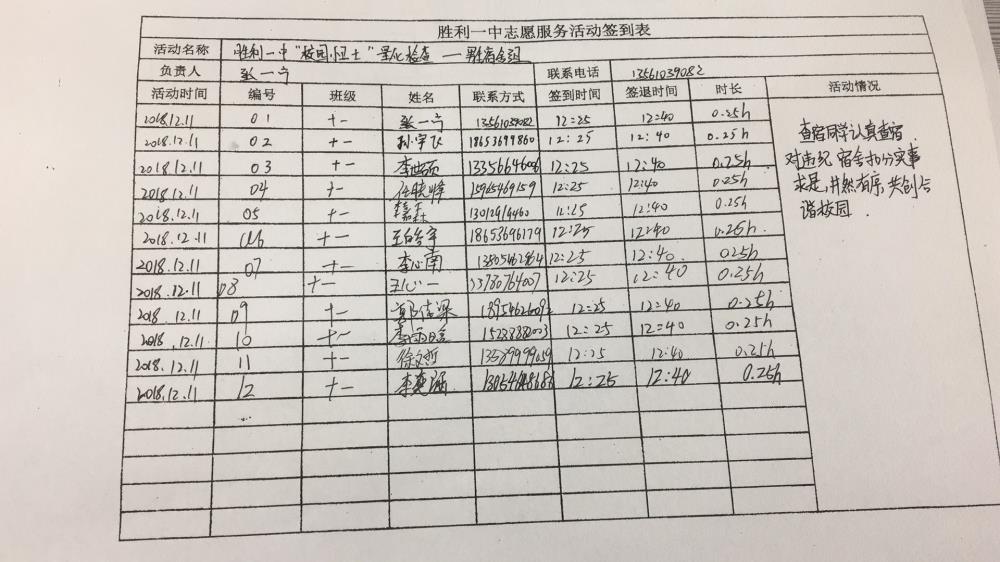 胜利一中志愿服务活动签到表
活动名称 胜利一中"校园卫士"量化检查——男生宿舍组
负责人 张一宁 联系电话 13561039082
活动时间 编号 班级 姓名 联系方式 签到时间 签退时间 时长 活动情况
2018.12.11 01 十一 张一宁 13561039082 12:25 12:40 0.25h
2018.12.11 02 十一 孙宇飞 18653699860 12:25 12:40 0.25h
2018.12.11 03 十一 李世硕 12:25 12:40 0.25h
2018.12.11 04 十一 15965469159 12:25 12:40 0.25h
2018.12.11 05 十一 12:25 12:40 0.25h
2018.12.11 06 十一 18653696179 12:25 12:40 0.25h
2018.12.11 07 十一 李心南 12:25 12:40 0.25h
2018.12.11 08 十一 王心一 13780764007 12:25 12:40 0.25h
2018.12.11 09 十一 12:25 12:40 0.25h
2018.12.11 10 十一 12:25 12:40 0.25h
2018.12.11 11 十一 徐文哲 12:25 12:40 0.25h
2018.12.11 12 十一 12:25 12:40 0.25h
...
查宿同学认真查宿
对违纪宿舍扣分实事
求是,井然有序,共创和
谐校园.